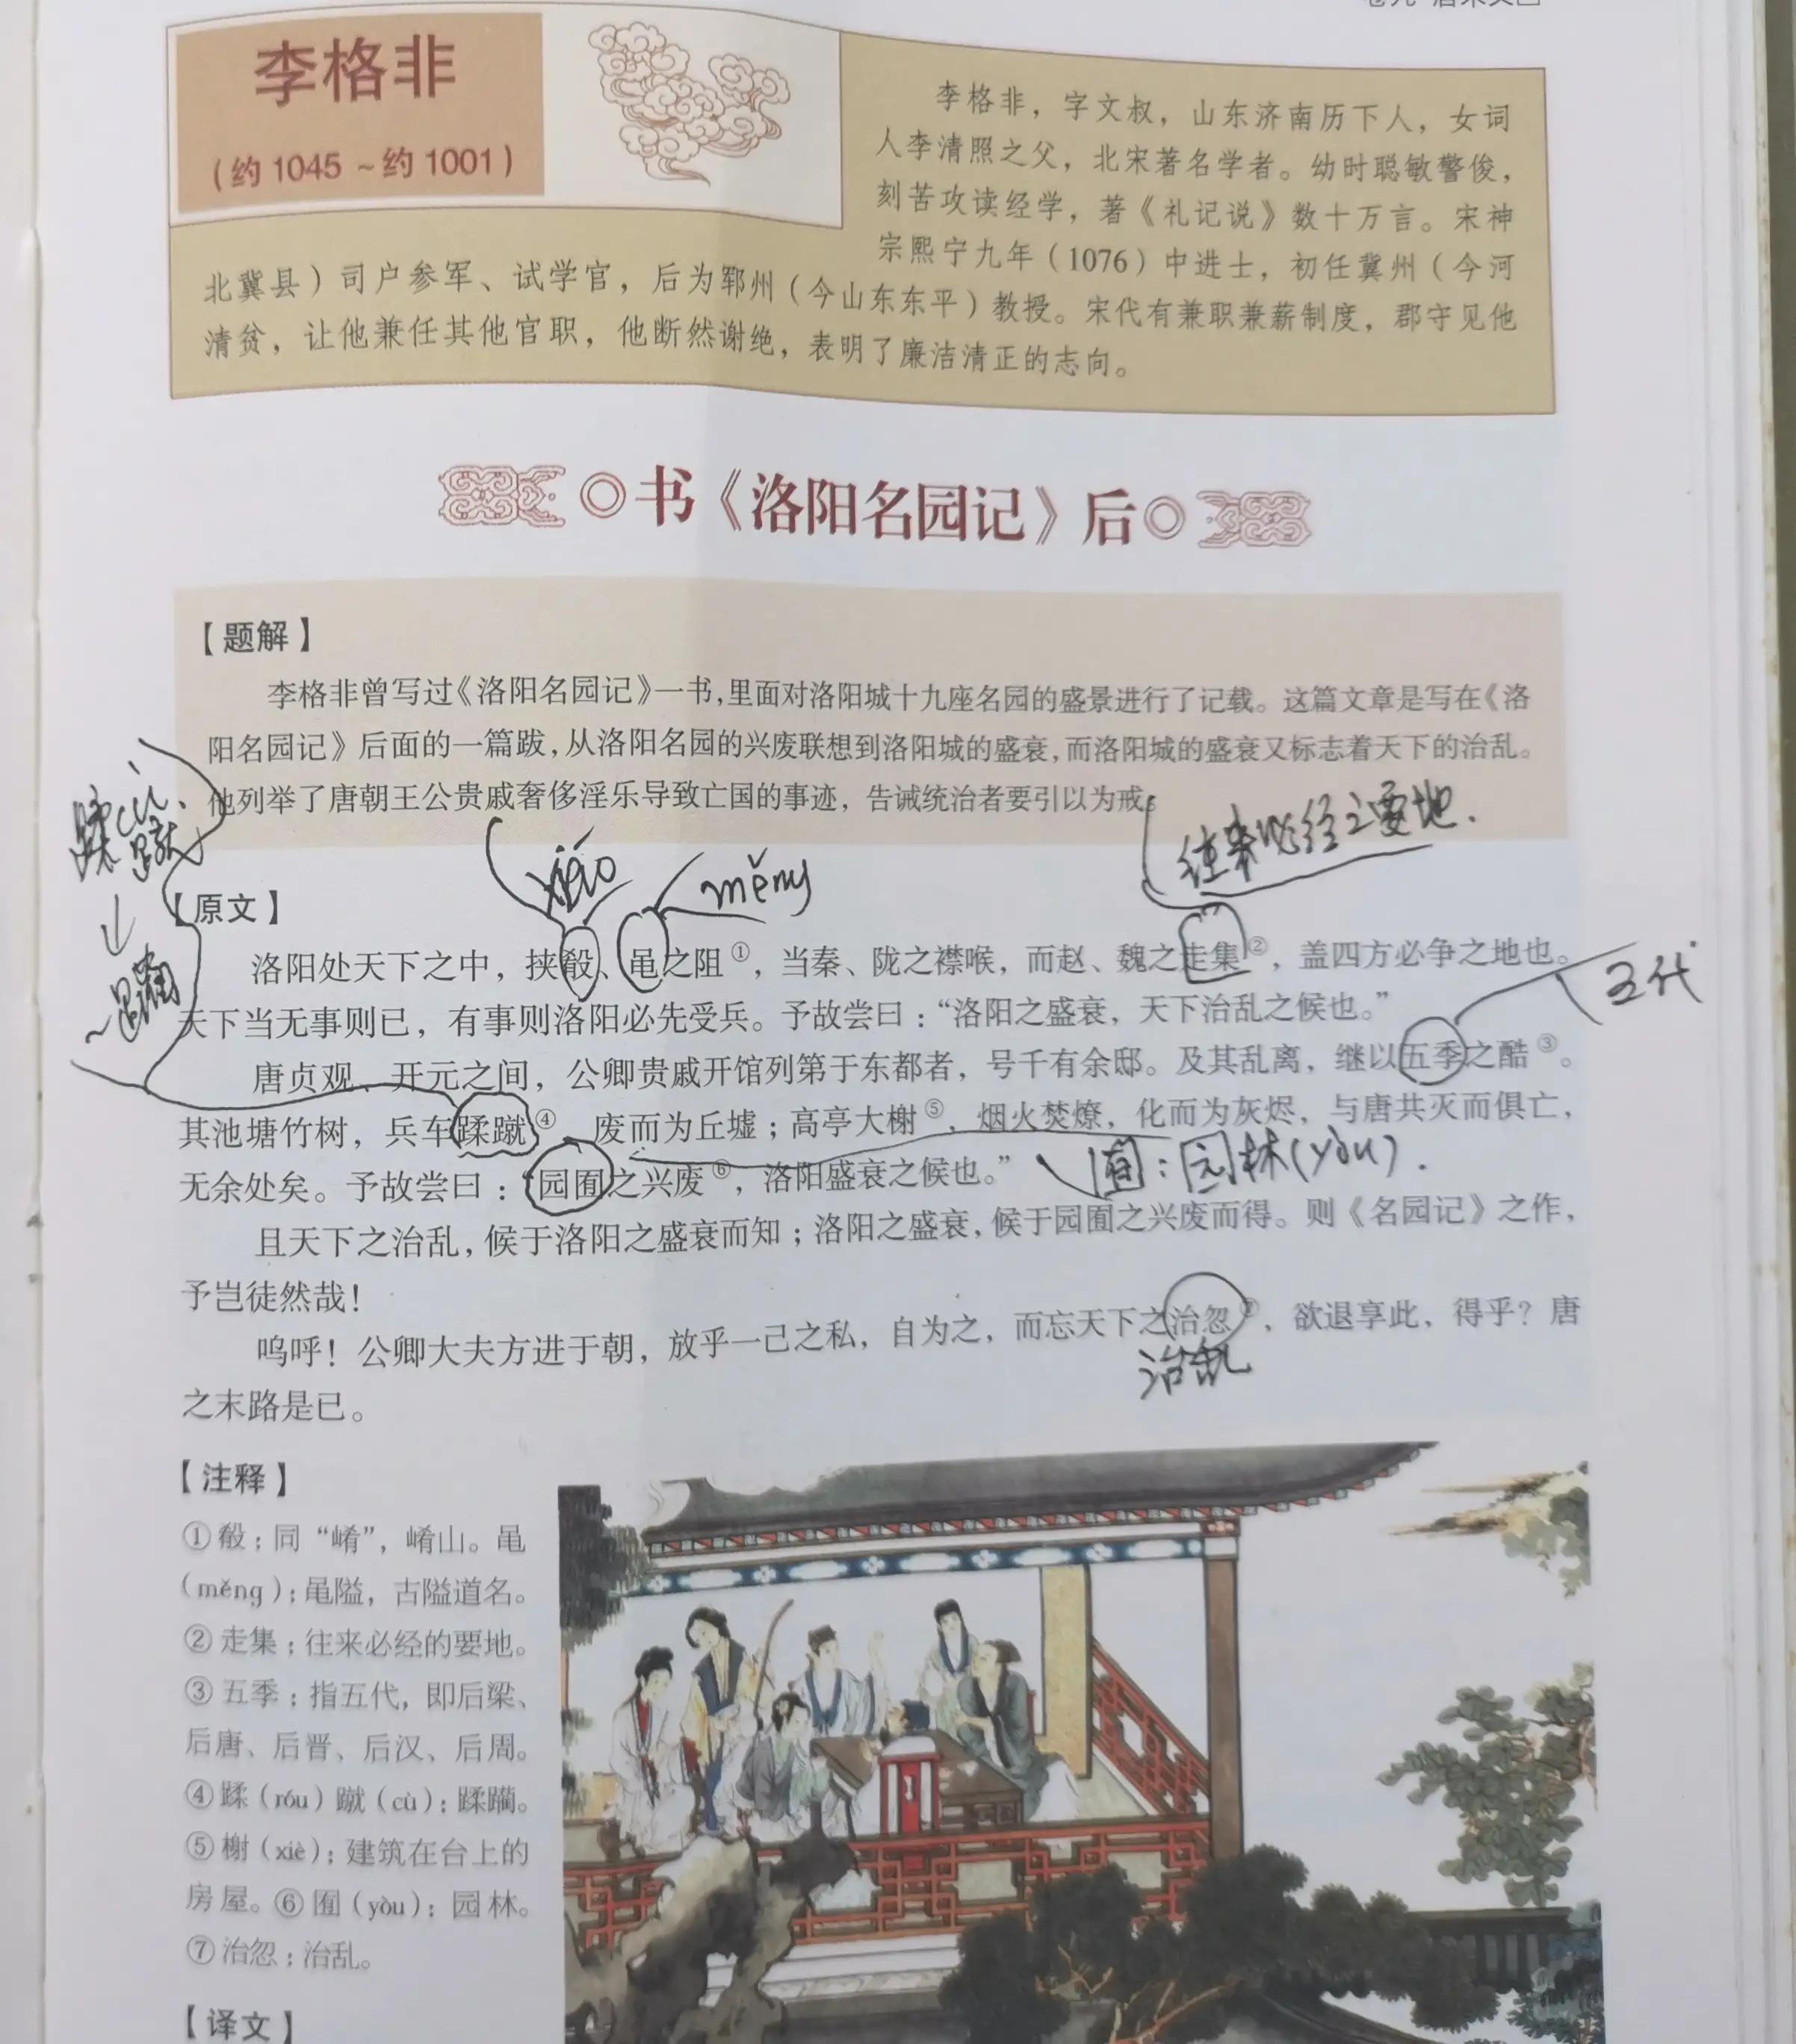 李格非
(约1045~约1001)
李格非，字文叔，山东济南历下人，女词
人李清照之父，北宋著名学者。幼时聪敏警俊，
刻苦攻读经学，著《礼记说》数十万言。宋神
宗熙宁九年（1076）中进士，初任冀州（今河
北冀县）司户参军、试学官，后为郓州（今山东东平）教授。宋代有兼职兼薪制度，郡守见他
清贫，让他兼任其他官职，他断然谢绝，表明了廉洁清正的志向。
书《洛阳名园记》后
【题解】
李格非曾写过《洛阳名园记》一书，里面对洛阳城十九座名园的盛景进行了记载。这篇文章是写在《洛
阳名园记》后面的一篇跋，从洛阳名园的兴废联想到洛阳城的盛衰，而洛阳城的盛衰又标志着天下的治乱。
他列举了唐朝王公贵戚奢侈淫乐导致亡国的事迹，告诫统治者要引以为戒。
往来必经之要地.
měng
蹂蹴
~躏
【原文】
洛阳处天下之中，挟殽、黾之阻①，当秦、陇之襟喉，而赵、魏之走集②，盖四方必争之地也。
五代
天下当无事则已，有事则洛阳必先受兵。予故尝曰：“洛阳之盛衰，天下治乱之候也。”
唐贞观、开元之间，公卿贵戚开馆列第于东都者，号千有余邸。及其乱离，继以五季之酷③。
其池塘竹树，兵车蹂蹴④，废而为丘墟；高亭大榭⑤，烟火焚燎，化而为灰烬，与唐共灭而俱亡，
无余处矣。予故尝曰：“园囿之兴废⑥，洛阳盛衰之候也。”
囿：园林(yòu).
且天下之治乱，候于洛阳之盛衰而知；洛阳之盛衰，候于园囿之兴废而得。则《名园记》之作，
予岂徒然哉！
呜呼！公卿大夫方进于朝，放乎一己之私，自为之，而忘天下之治忽⑦，欲退享此，得乎？唐
治乱
之末路是已。
【注释】
①殽：同“崤”，崤山。黾
(měng)：黾隘，古隘道名。
②走集：往来必经的要地。
③五季：指五代，即后梁、
后唐、后晋、后汉、后周。
④蹂（róu）蹴（cù）：蹂躏。
⑤榭（xiè）：建筑在台上的
房屋。⑥囿（yòu）：园林。
⑦治忽：治乱。
【译文】